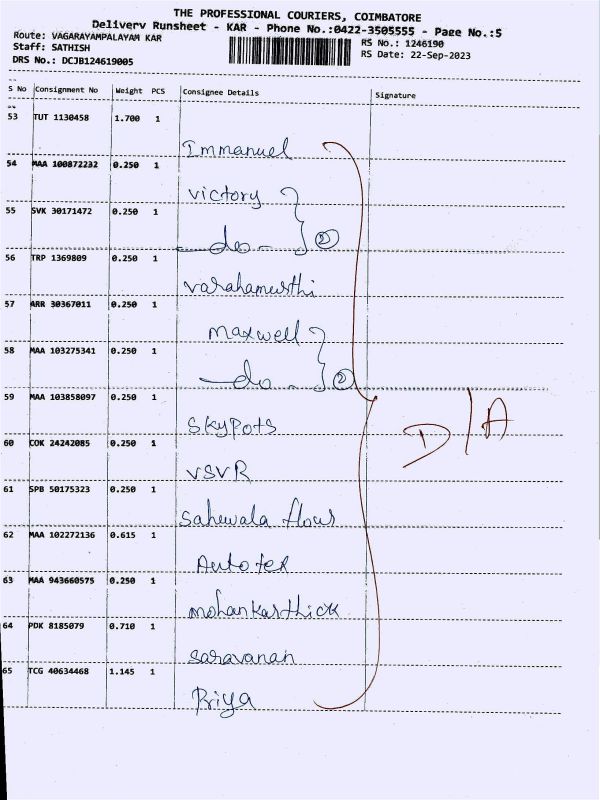 THE PROFESSIONAL COURIERS, COIMBATORE
Delivery Runsheet - KAR - Phone No.:0422-3505555 - Page No.:5
Route: VAGARAYAMPALAYAM KAR
RS No.: 1246190
Staff: SATHISH
RS Date: 22-Sep-2023
DRS No.: DCJB124619005
S No Consignment No Weight PCS Consignee Details Signature
53 TUT 1130458 1.700 1
Immanuel
54 MAA 100872232 0.250 1
victory
55 SVK 30171472 0.250 1
-do- 2
56 TRP 1369809 0.250 1
varahamurthi
57 ARR 30367011 0.250 1
maxwell
58 MAA 103275341 0.250 1
-do- 2
59 MAA 103858097 0.250 1
Skypots
D/A
60 COK 24242085 0.250 1
VSVR
61 SPB 50175323 0.250 1
Sahewala flour
62 MAA 102272136 0.615 1
Autotex
63 MAA 943660575 0.250 1
mohankarthick
64 PDK 8185079 0.710 1
saravanan
65 TCG 40634468 1.145 1
Priya